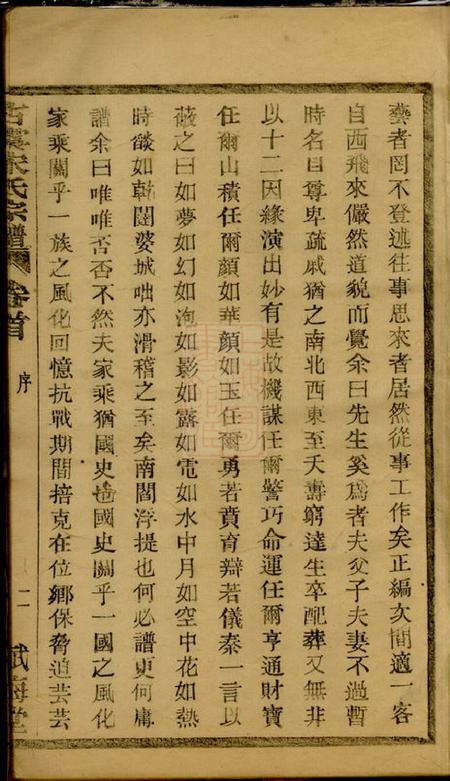 藝者罔不登述往事思來者居然從事工作矣正編次間適一客
自西飛來儼然道貌而覺余曰先生奚爲者夫父子夫妻不過暫
時名目尊卑疏戚猶之南北西東至夭壽窮達生卒配葬又無非
以十二因緣演出妙有是故機謀任爾警巧命運任爾亨通財寶
任爾山積任爾顏如華顏如玉任爾勇若賁育辯若儀秦一言以
蔽之曰如夢如幻如泡如影如露如電如水中月如空中花如熱
時燄如乾闥婆城咄亦滑稽之至矣南閻浮提也何必譜更何庸
譜余曰唯唯否否不然夫家乘猶國史也國史關乎一國之風化
家乘關乎一族之風化回憶抗戰期間掊克在位鄉保脅迫芸芸
古虞宋氏宗譜 卷首 序 二